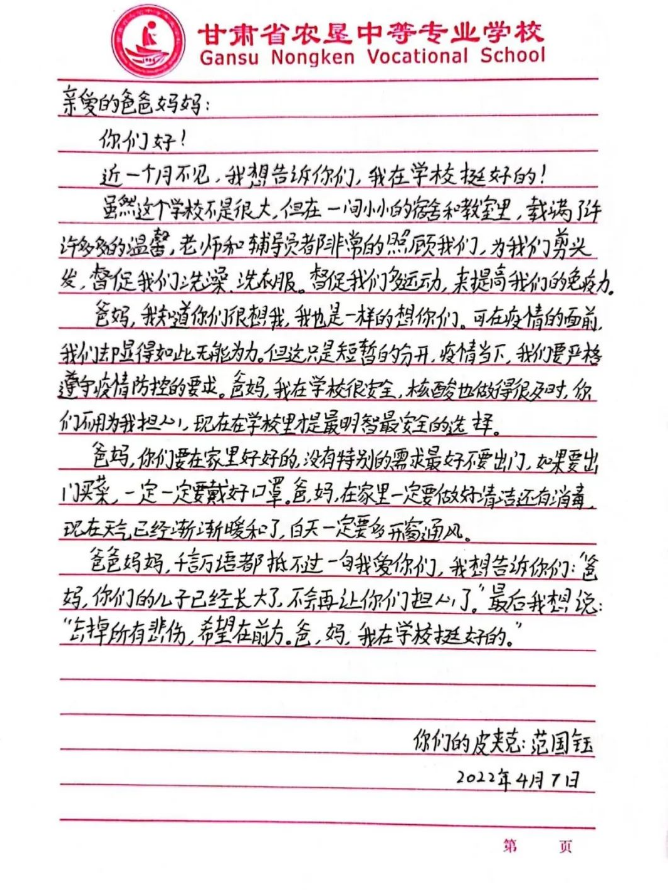 甘肃省农垦中等专业学校
Gansu Nongken Vocational School
亲爱的爸爸妈妈：
你们好！
近一个月不见，我想告诉你们，我在学校挺好的！
虽然这个学校不是很大，但在一间小小的宿舍和教室里，载满了许
许多多的温馨，老师和辅导员都非常的照顾我们，为我们剪头
发，督促我们洗澡、洗衣服。督促我们多运动，来提高我们的免疫力。
爸妈，我知道你们很想我，我也是一样的想你们。可在疫情的面前，
我们却显得如此无能为力。但这只是短暂的分开，疫情当下，我们要严格
遵守疫情防控的要求。爸妈，我在学校很安全，核酸也做得很及时，你
们不用为我担心，现在在学校里才是最明智最安全的选择。
爸妈，你们要在家里好好的，没有特别的需求最好不要出门，如果要出
门买菜，一定一定要戴好口罩。爸，妈，在家里一定要做好清洁还有消毒，
现在天气已经渐渐暖和了，白天一定要多开窗通风。
爸爸妈妈，千言万语都抵不过一句我爱你们，我想告诉你们：“爸
妈，你们的儿子已经长大了，不会再让你们担心了。”最后我想说：
“去掉所有悲伤，希望在前方。爸，妈，我在学校挺好的。”
你们的皮夹克：范国钰
2022年4月7日
第 页